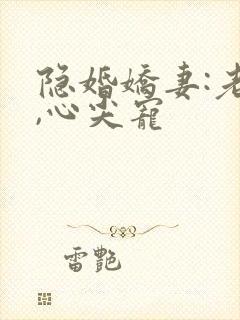 隐婚娇妻:老
,心尖宠
雷艷